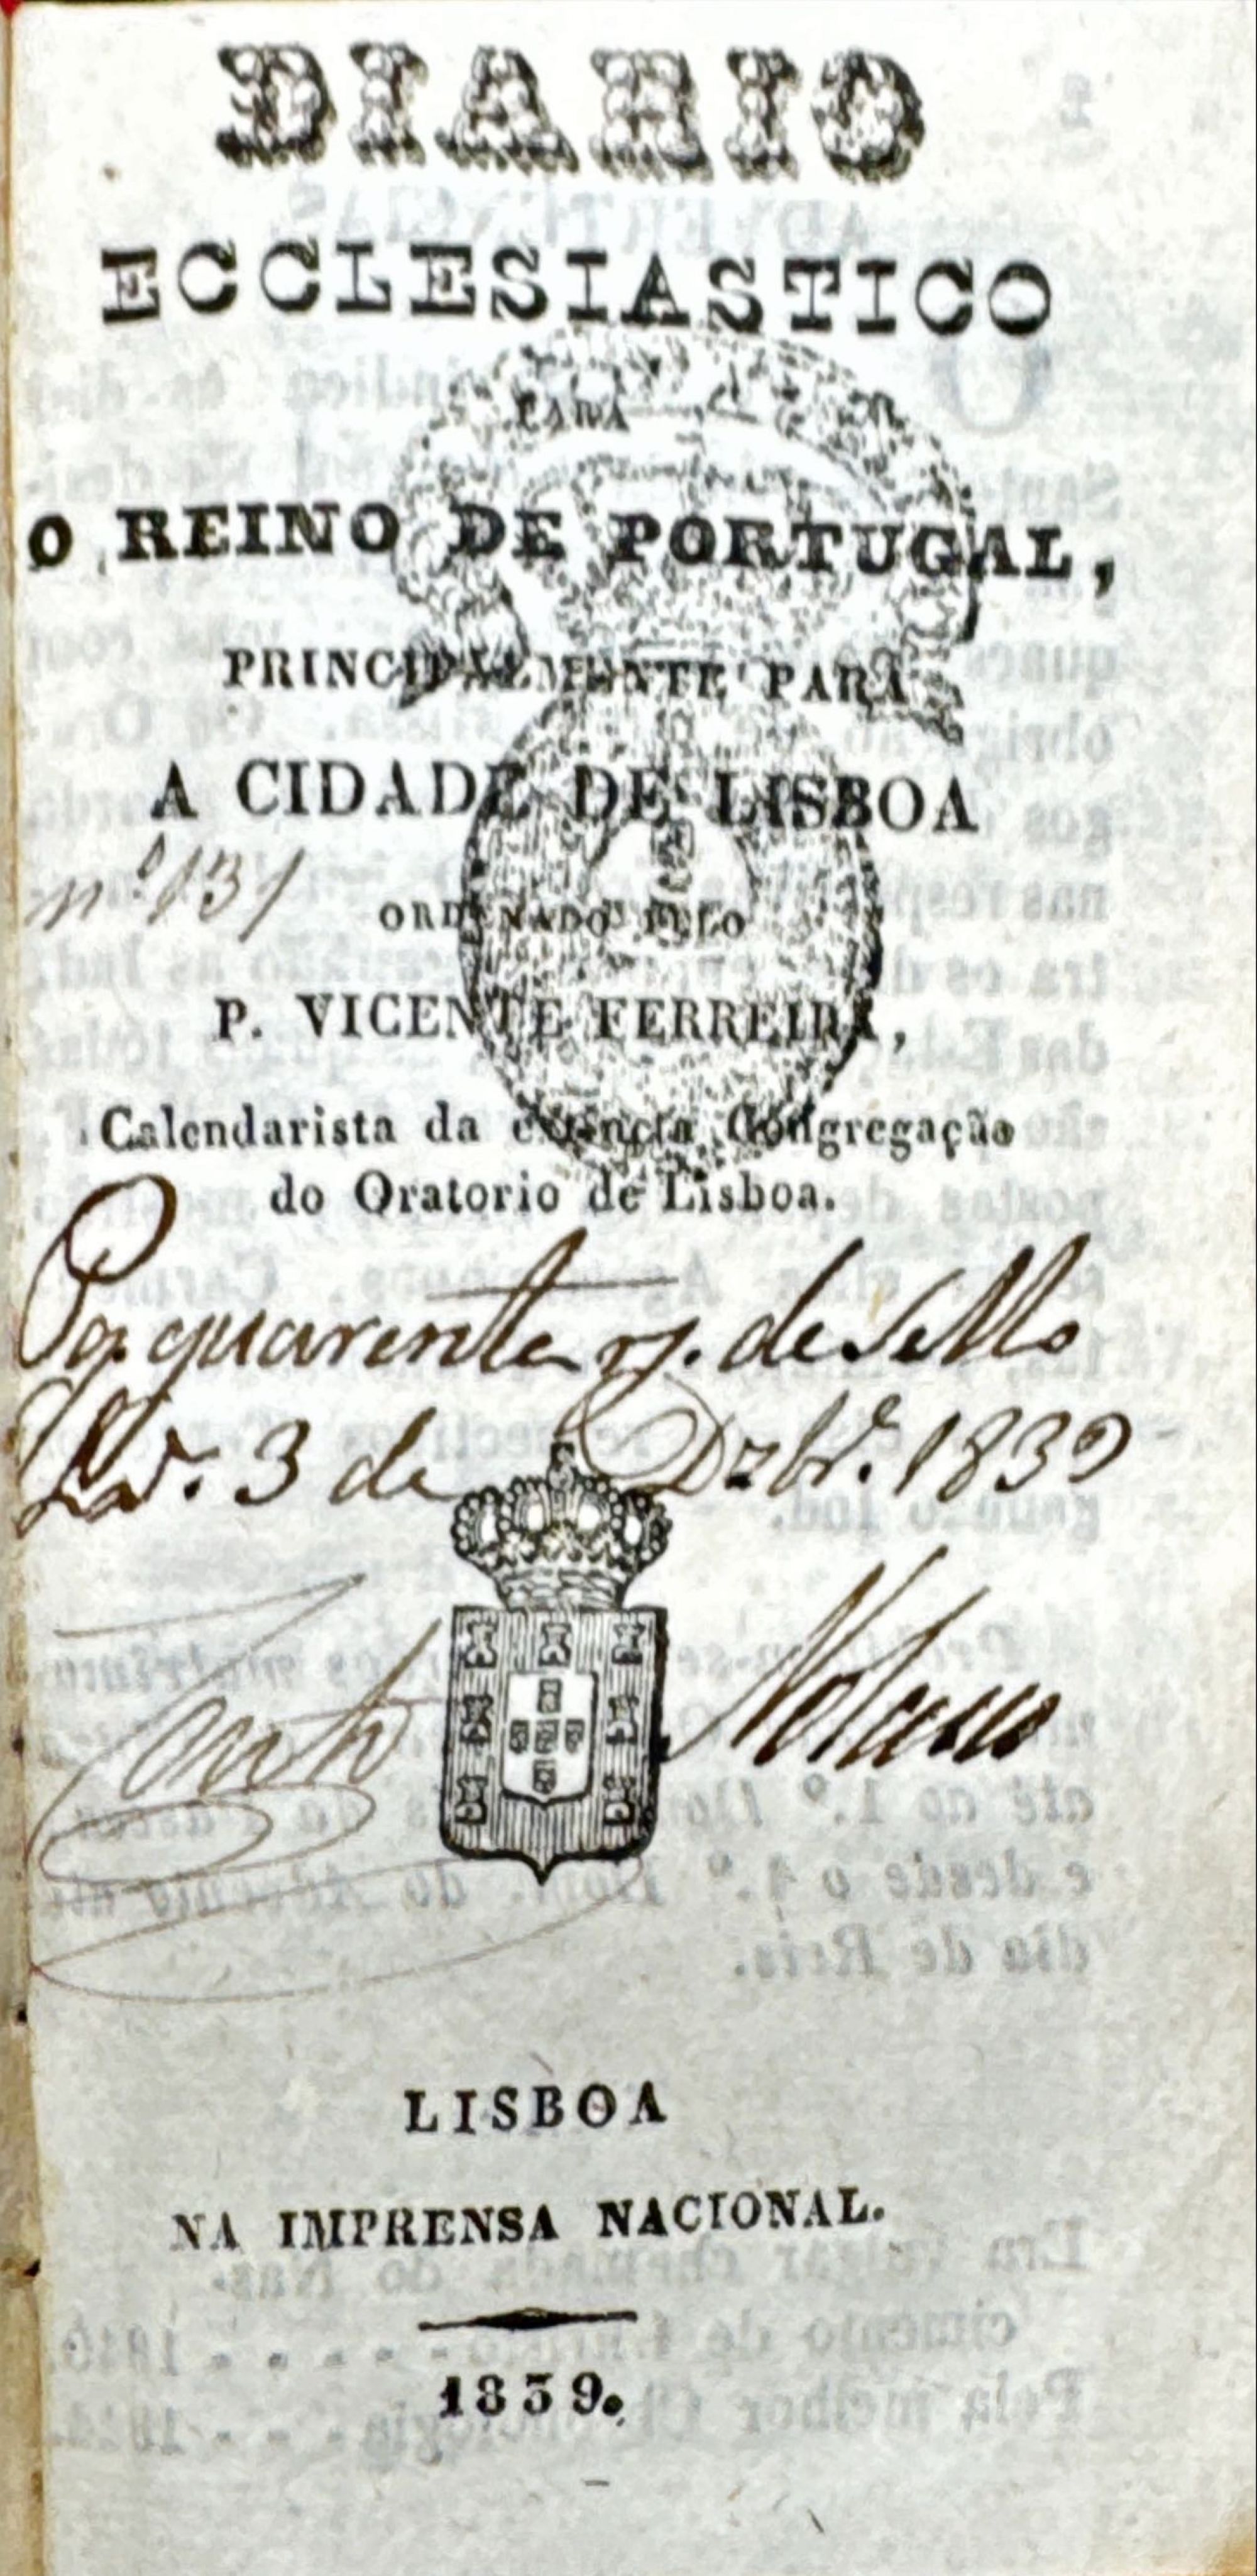 DIARIO
ECCLESIASTICO
PARA
O REINO DE PORTUGAL,
PRINCIPALMENTE PARA
A CIDADE DE LISBOA
nº 131
ORDENADO PELO
P. VICENTE FERREIRA,
Calendarista da extincta Congregação
do Oratorio de Lisboa.
Pg. quarenta rs. de Sello
Lxª. 3 de Dzbrº. 1839
LISBOA
NA IMPRENSA NACIONAL.
1839.